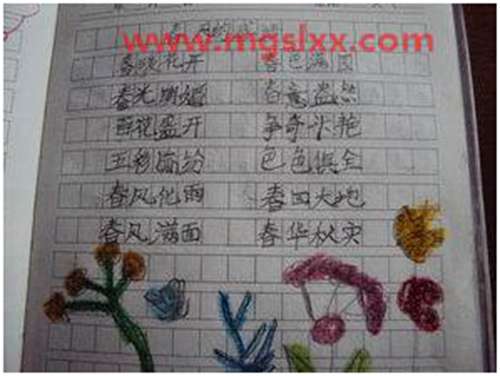 www.mgslxx.com
春暖花开 春色满园
春光明媚 春意盎然
鲜花盛开 争奇斗艳
五彩缤纷 色色俱全
春风化雨 春回大地
春风满面 春华秋实